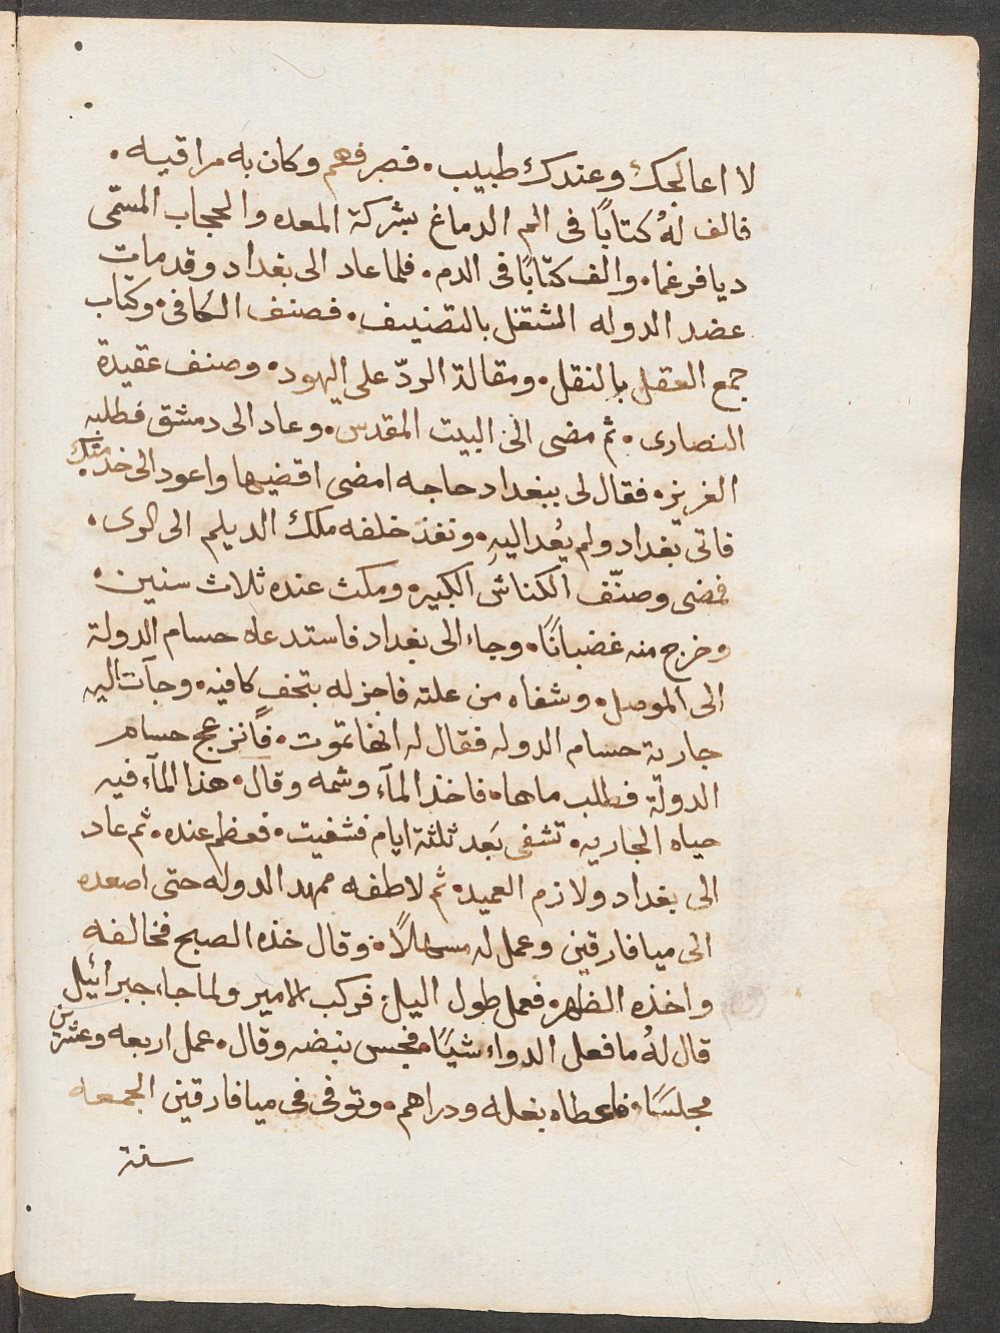 لا اعالجك وعندك طبيب. فصرفهم وكان به مراقيه.
فالف لهُ كتابًا فى الم الدماغ بشركة المعده والحجاب المسمّى
ديافرغما. والف كتابًا فى الدم. فلما عاد الى بغداد وقد مات
عضد الدوله اشتغل بالتصنيف. فصنف الكافى. وكتاب
جمع العقل بالنقل. ومقالة الردّ على اليهود. وصنف عقيدة
النصارى. ثم مضى الى البيت المقدس. وعاد الى دمشق فطلبه
العزيز. فقال لى ببغداد حاجه امضى اقضيها واعود الى خدمتك.
فاتى بغداد ولم يُعد اليهِ. ونفذ خلفه ملك الديلم الى الرى.
فمضى وصنّف الكناش الكبير. ومكث عنده ثلاث سنين.
وخرج منه غضبانًا. وجاء الى بغداد فاستدعاه حسام الدولة
الى الموصل. وشفاه من علته فاجزله بتحف كافيه. وجآت اليه
جارية حسام الدوله فقال له انها تموت. فانزعج حسام
الدولة فطلب ماها. فاخذ المآء وشمه وقال. هذا المآء فيه
حياه الجاريه. تشفى بَعد ثلثة ايام فشفيت. فعظم عنده. ثم عاد
الى بغداد ولازم العميد. ثم لاطفه ممهد الدوله حتى اصعده
الى ميافارقين وعمل له مسهلاً. وقال خذه الصبح فخالفه
واخذه الظهر. فعمل طول اليل. فركب الامير ولما جاء جبرائيل
قال لهُ ما فعل الدواء شيًا. فجس نبضه وقال. عمل اربعه وعشرين
مجلسًا. فاعطاه بغله ودراهم. وتوفى فى ميافارقين الجمعه
سنة